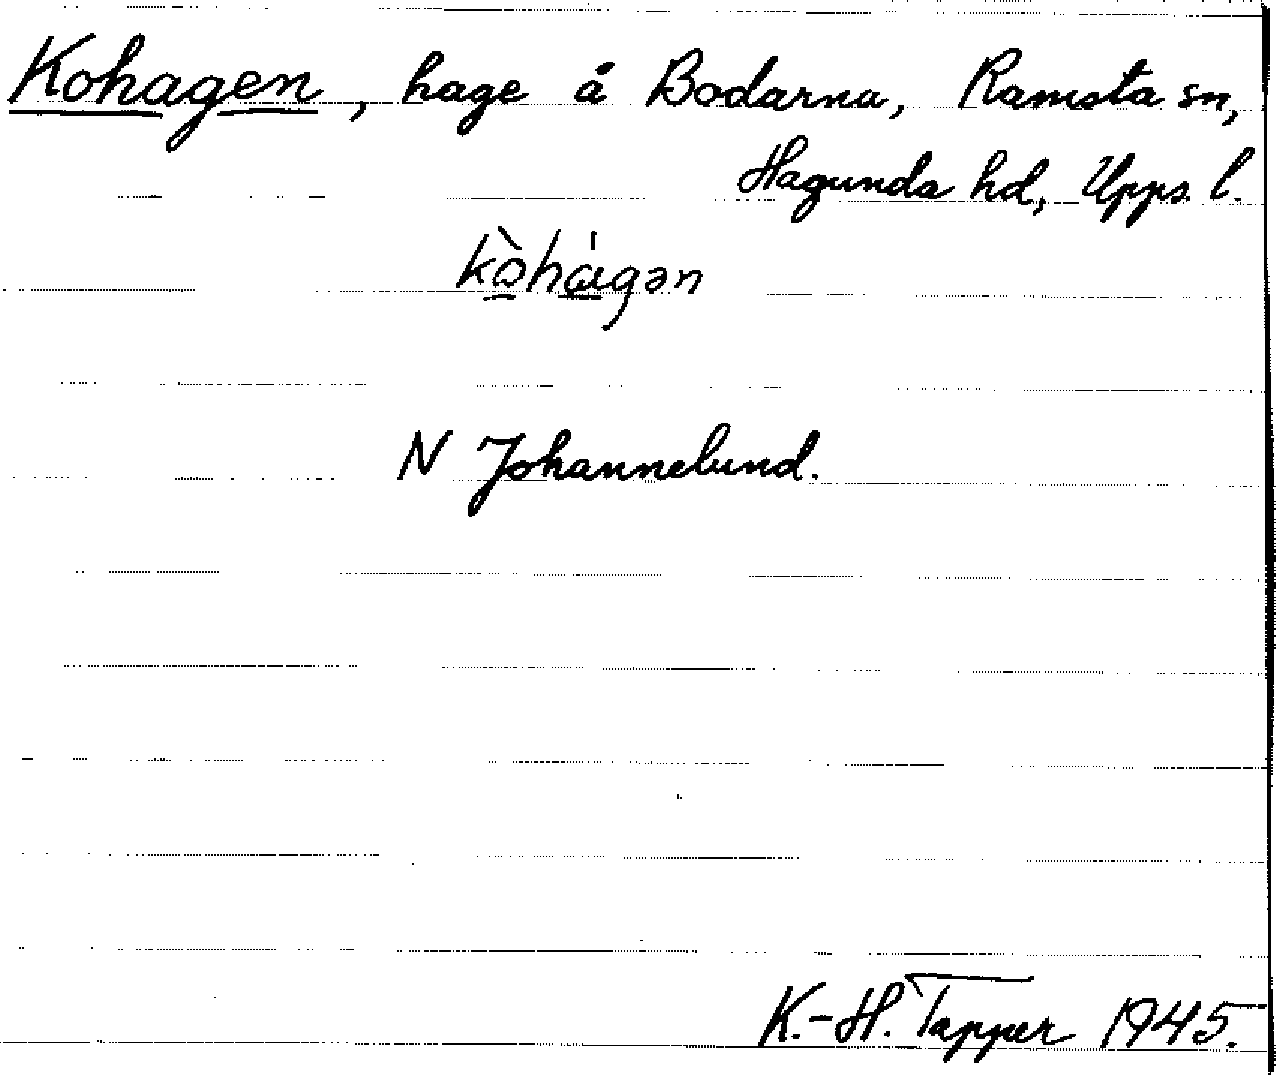 Kohagen, hage å Bodarna, Ramsta sn,
Hagunda hd, Upps. l.
kò̱há̱gən
N Johannelund.
K.-H. Tapper 1945.